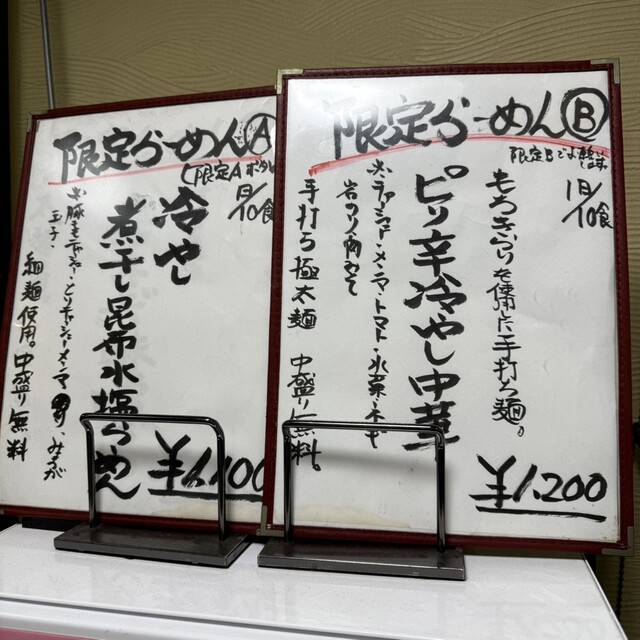 限定らーめんⒶ
(限定Aボタン
1日/10食
冷やし
煮干し昆布水塩らーめん
※豚モモチャーシュー・とりチャーシュー・メンマ
玉子
みょうが
細麺使用。中盛り無料
¥1,100
限定らーめんⒷ
限定Bでお願いします
1日/10食
もち きらりを使った手打ち麺。
ピリ辛冷やし中華
※チャーシュー・メンマ・トマト・水菜・ネギ
岩のり
手打ち極太麺 中盛り無料。
¥1,200